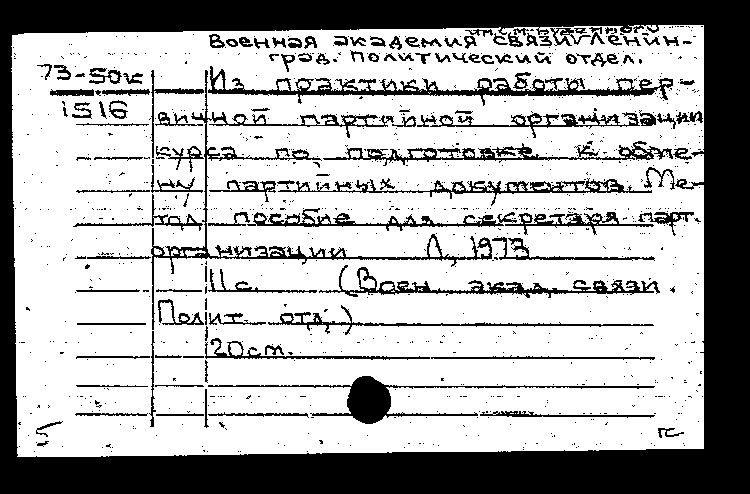 им. С.М. Буденного
Военная академия связи Ленин-
град. Политический отдел.
73-50к Из практики работы пер-
1516 вичной партийной организации
курса по подготовке к обме-
ну партийных документов. Ме-
тод. пособие для секретаря парт.
организации. Л., 1973
11 с. (Воен. акад. связи.
Полит. отд.)
20 см.
5